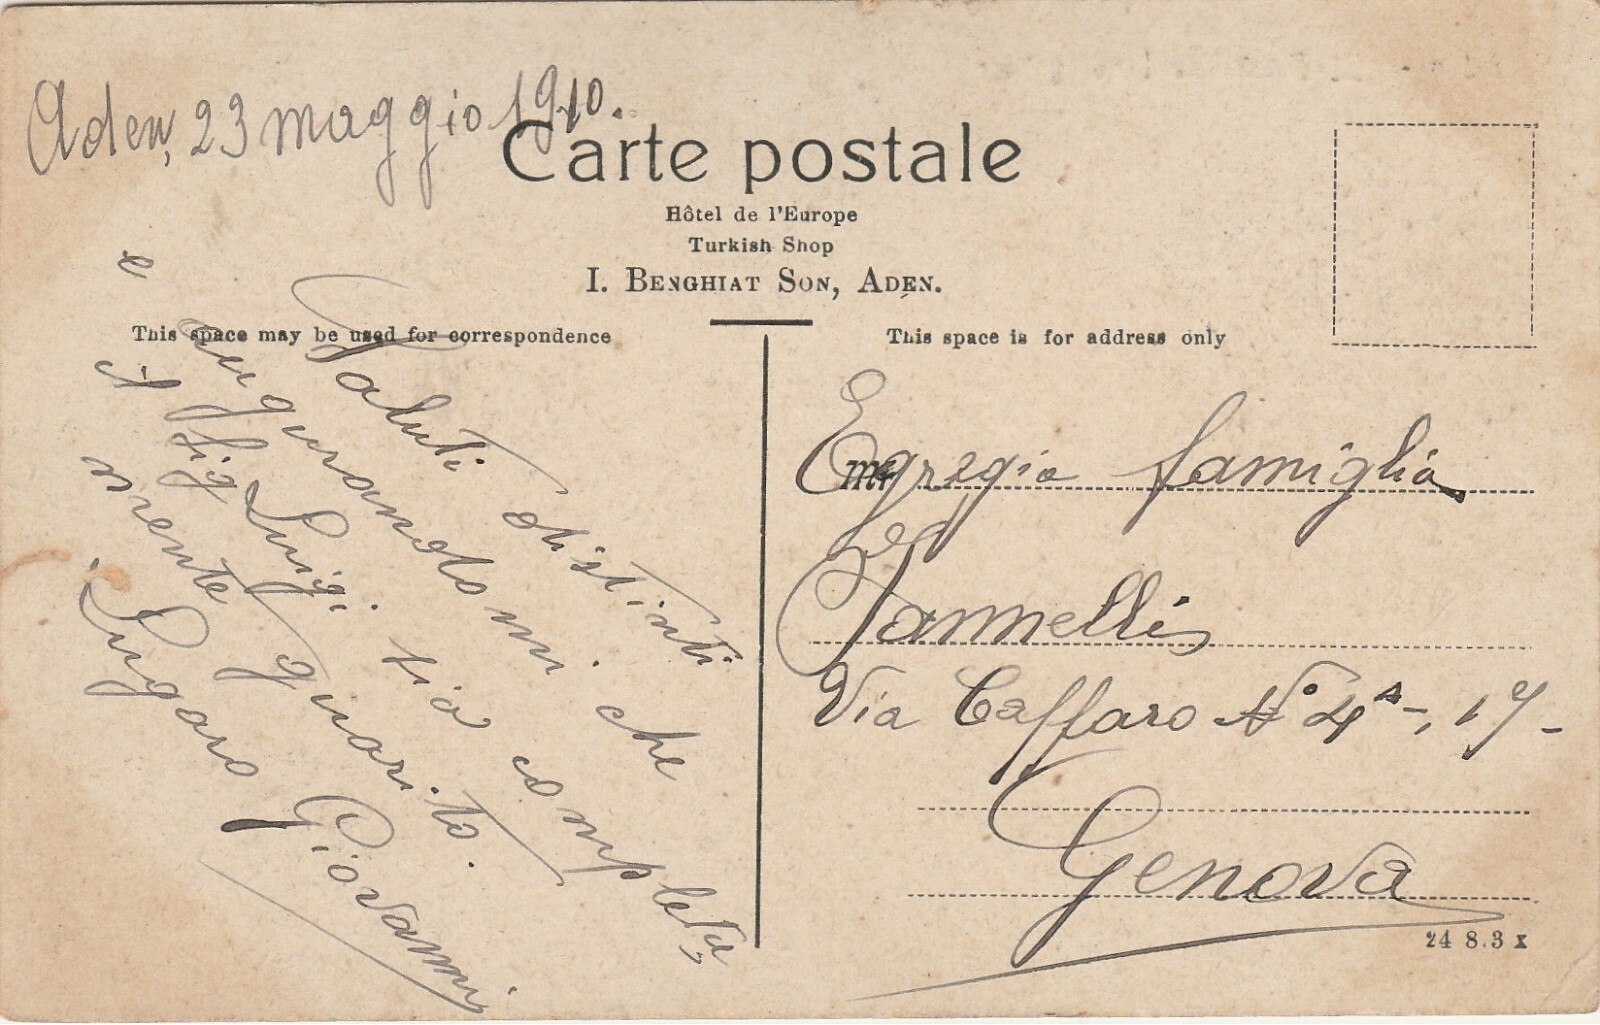 Aden, 23 maggio 1910.
Carte postale
Hôtel de l'Europe
Turkish Shop
I. BENGHIAT SON, ADEN.
This space may be used for correspondence
This space is for address only
Saluti distinti
e augurandomi che
il Sig Luigi sia completa,
mente guarito.
Lugaro Giovanni
Egregia famiglia
Iannellis
Via Caffaro N° 4A-, 17-
Genova
24 8.3 x